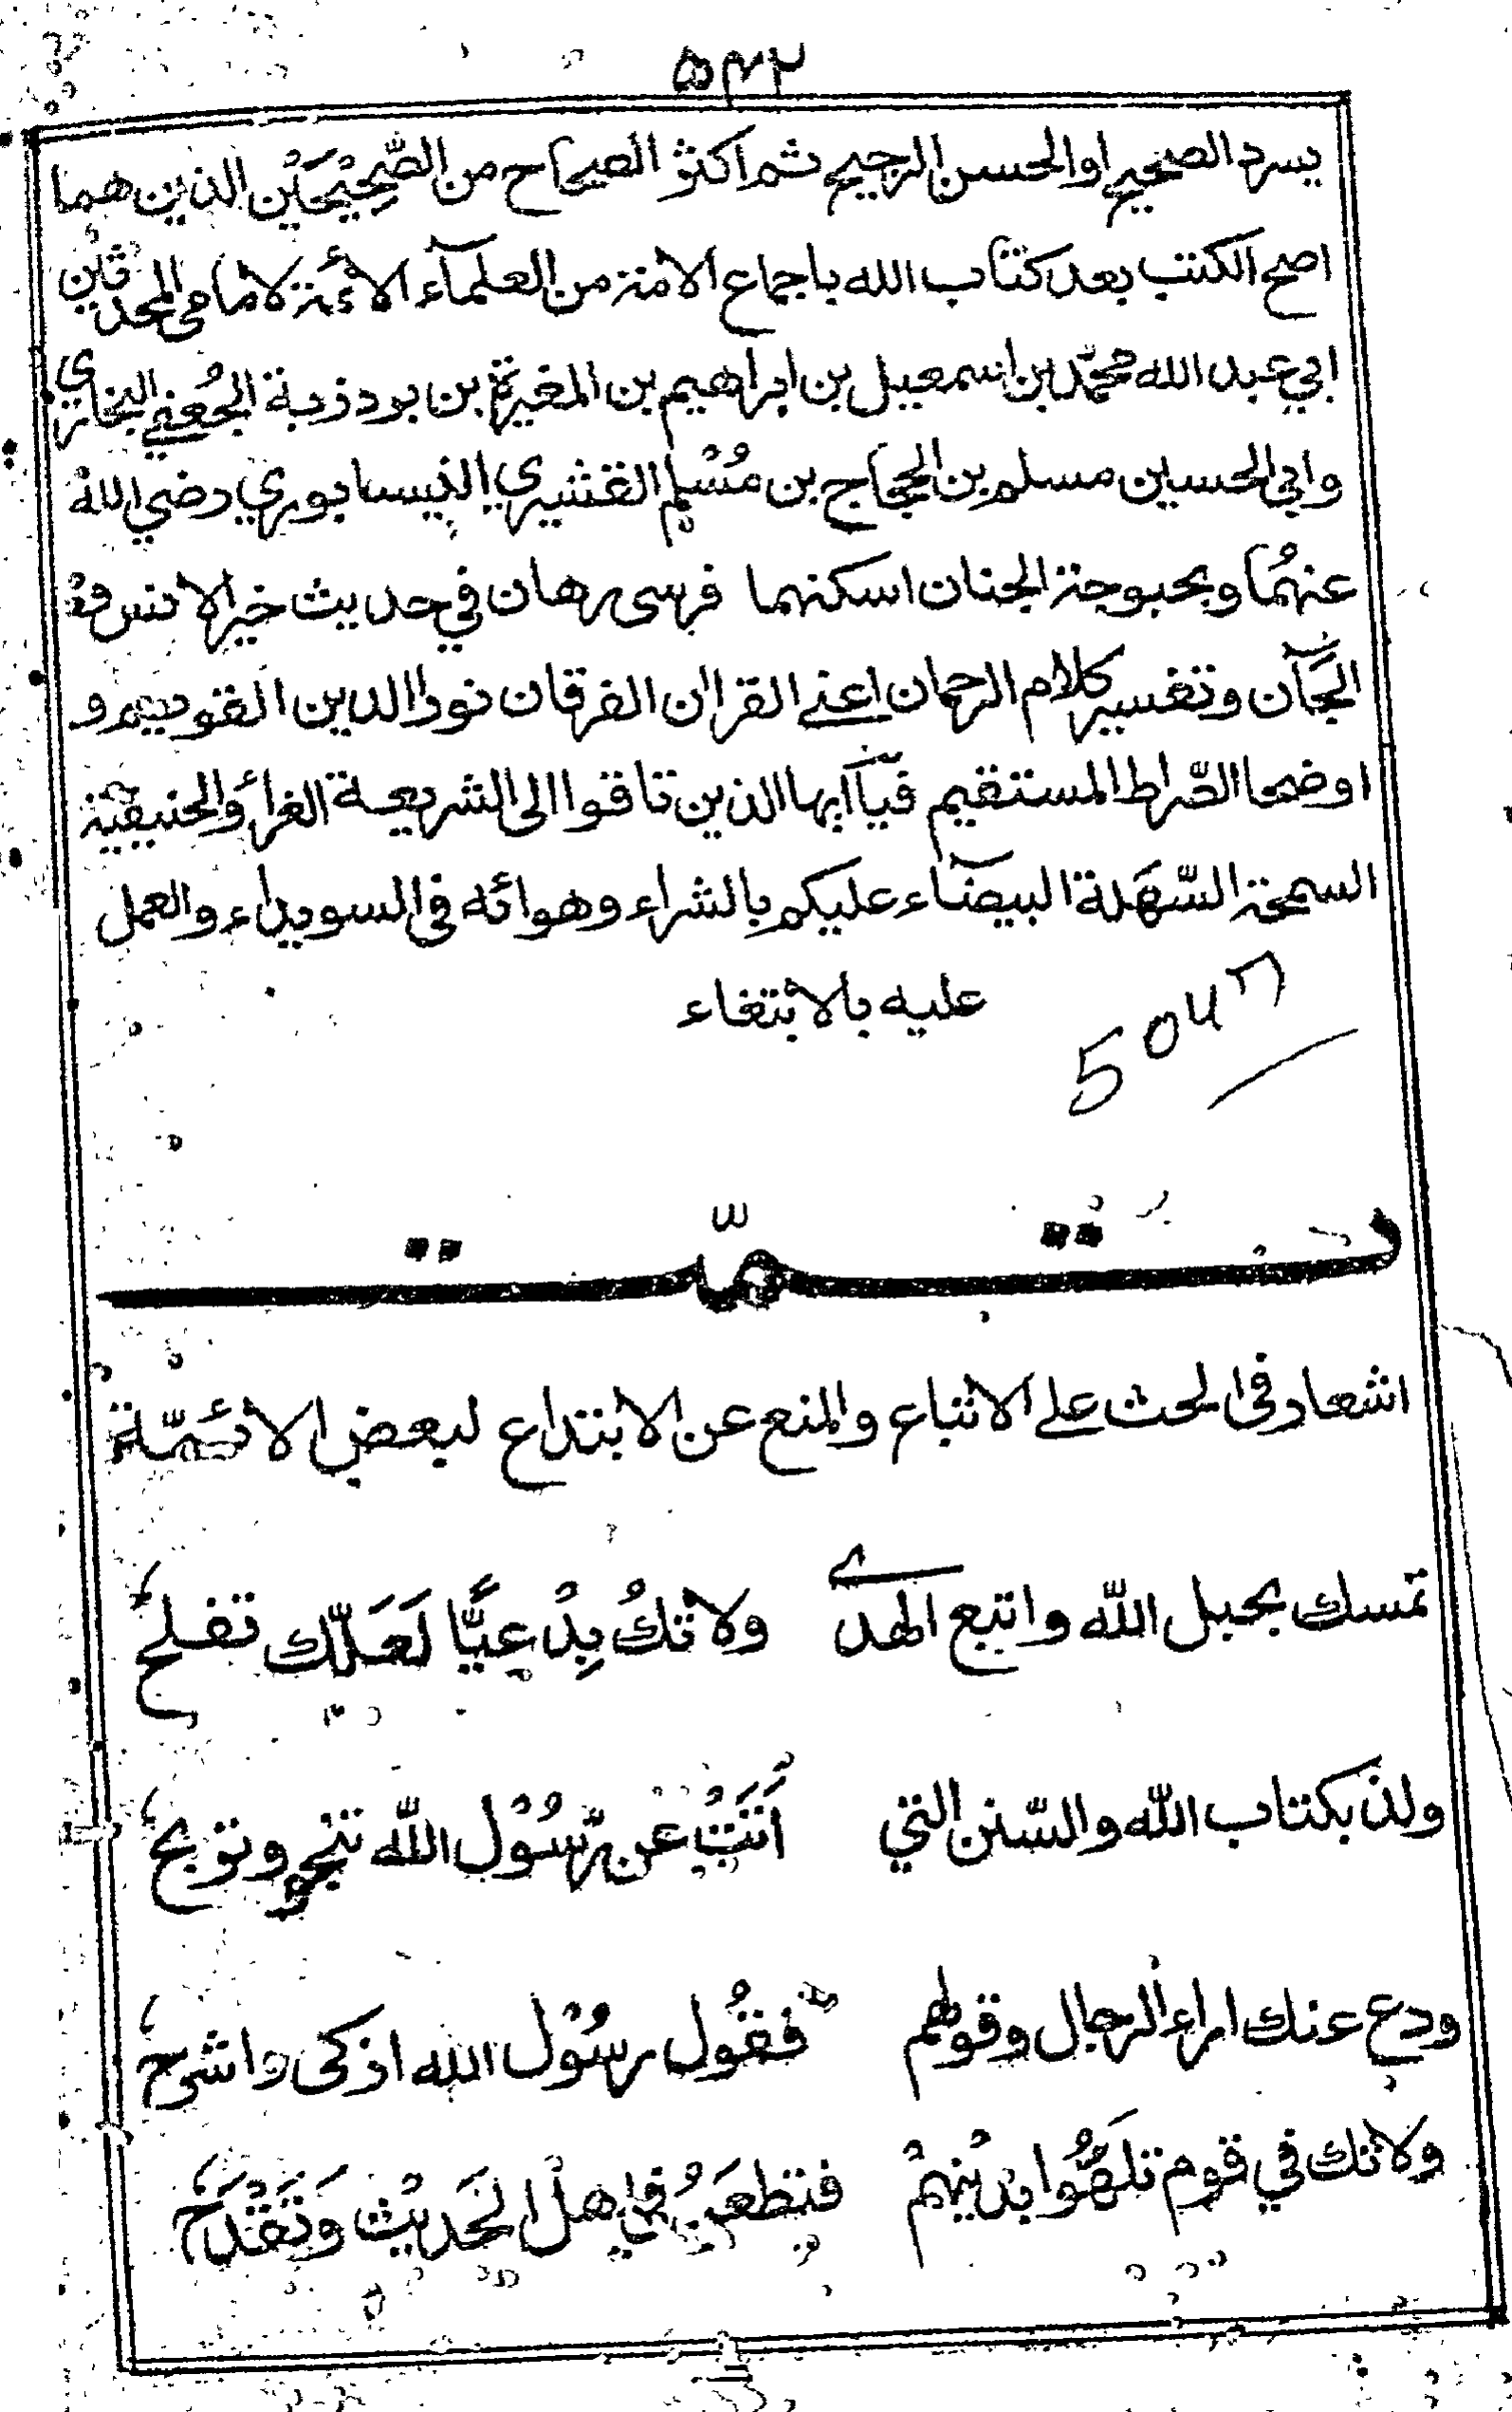 ۵۴۲
يسرد الصحيح او الحسن الرجيح ثم اكثر الصحاح من الصَّحِيْحَيْن الذين هما
اصح الكتب بعد كتاب الله باجماع الامة من العلمآء الائمة لامامي المحدثين
ابي عبد الله محمّد بن اسمعيل بن ابراهيم بن المغيرة بن بردزبة الجُعفي البخاري
وابي الحسين مسلم بن الحجاج بن مُسْلم القشيري النيسابوري رضي الله
عنهُما وبحبوحة الجنان اسكنهما فرسى رهان في حديث خير الانس و
الجَآن وتفسير كلام الرحمان اعنے القران الفرقان نورا الدين القويم و
اوضحا الصّراط المستقيم فيآ ايها الذين تاقوا الى الشريعة الغراء والحنيفية
السمحة السّهَلة البيضآء عليكم بالشراء وهوائه في السويداء والعمل
عليه بالابتغاء
504
تمّت
اشعار في الحث علے الاتباع والمنع عن الابتداع لبعض الائمّة
تمسك بحبل اللّه واتبع الهدے ولا تكُ بِدْعِيًّا لَعَلّك تفلحُ
ولذ بكتاب اللّه والسّنن التي أَتَتْ عن رّسُوْل اللّه تنجو وتربحُ
ودع عنك اراء الرجال وقولهم فقُول رسُوْل الله اذكى واشرحُ
ولا تك في قوم تلهَّوْا بدْينهمْ فتطعَنُ في اهل الحَديْث وَتَقْدَحُ